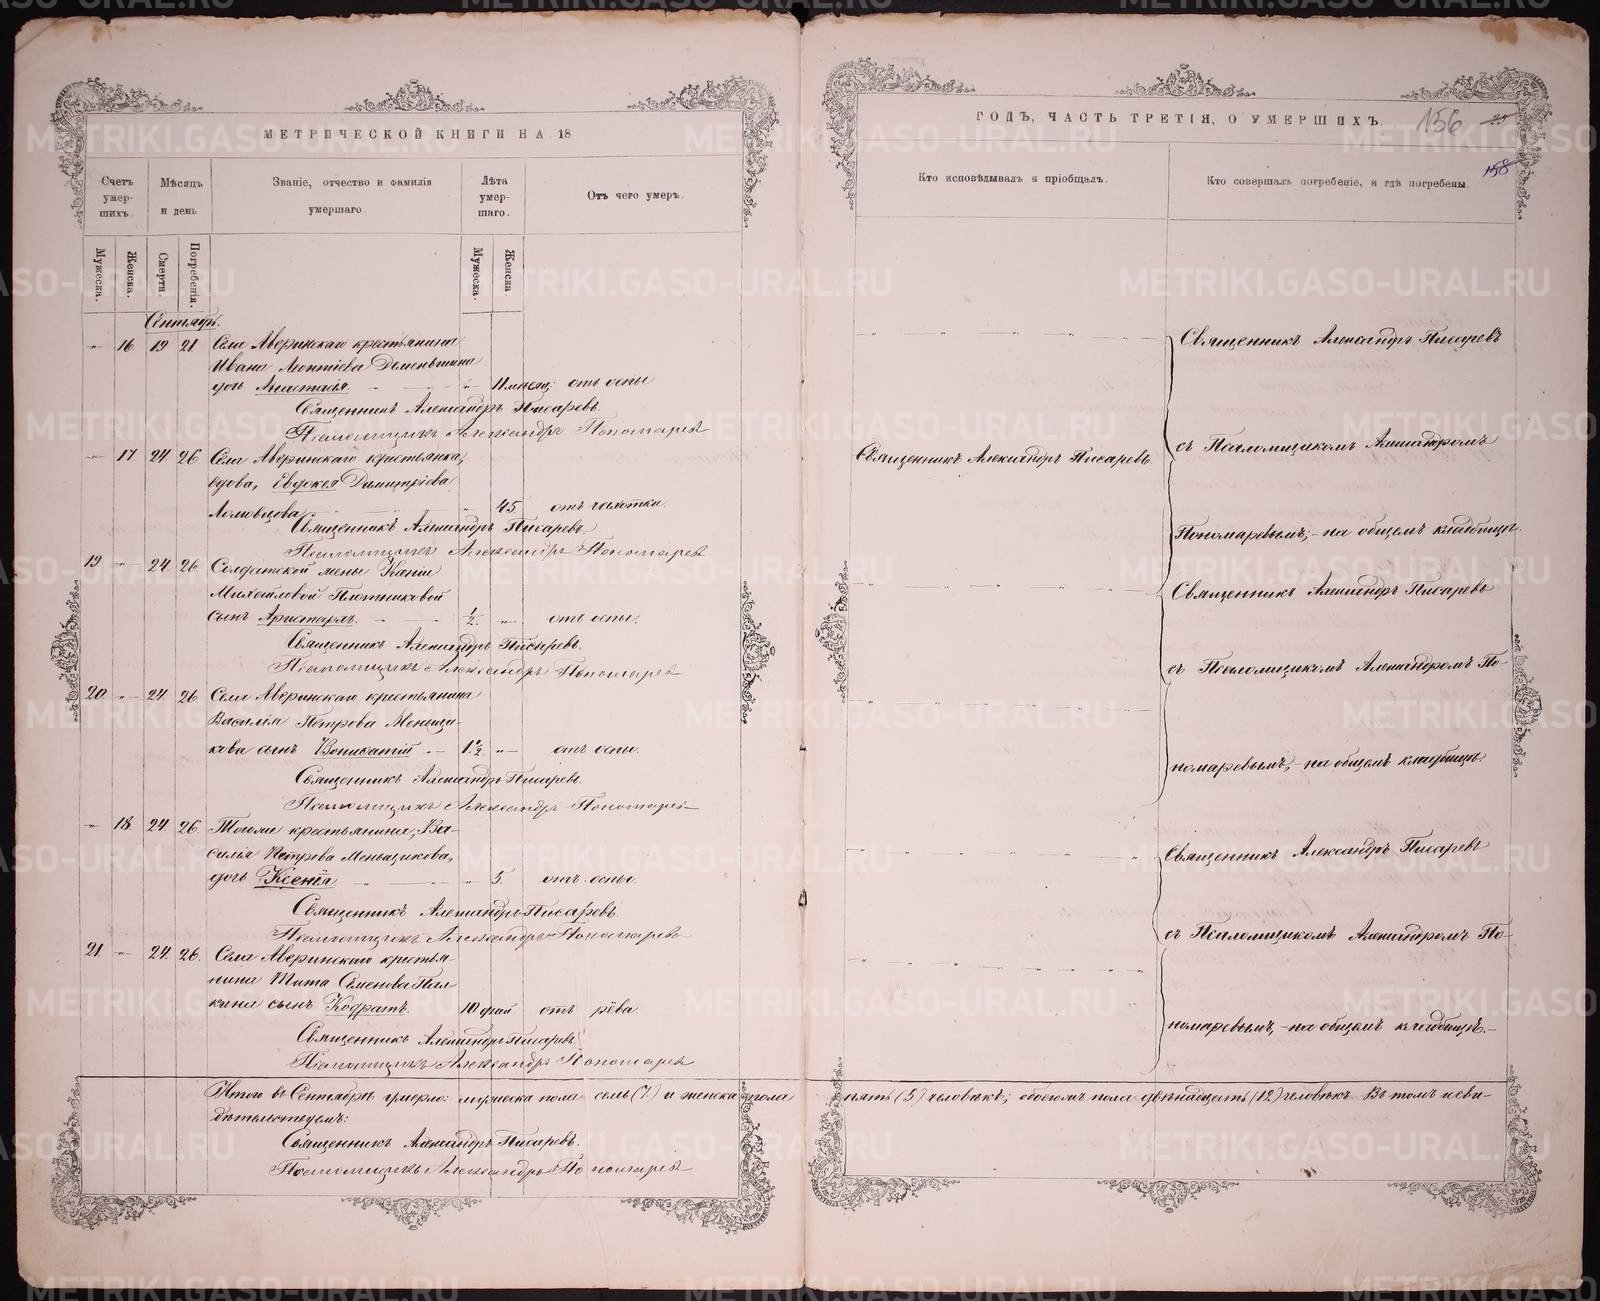 МЕТРИЧЕСКОЙ КНИГИ НА 18
Счетъ умер- шихъ.
Мѣсяцъ и день
Званіе, отчество и фамилія умершаго.
Лѣта умер- шаго.
Отъ чего умеръ.
Мужеска.
Женска.
Смерти.
Погребенія.
Мужеска.
Женска.
Сентябрь.
16. 19 21. Села Аверинскаго крестьянина
Ивана Леонтіева Деменьшина
дочь Анастасія. 11 мѣсяц: отъ оспы
Священникъ Александръ Писаревъ.
Псаломщикъ Александръ Пономаревъ
17. 24 26. Села Аверинскаго крестьянка,
вдова, Евдокея Димитріева
45. отъ чахотки.
Священникъ Александръ Писаревъ.
Псаломщикъ Александръ Пономаревъ
19 24 26. Солдатской жены Ксеніи
Михайловой Плотниковой
сынъ Аристархъ. 1/2. отъ оспы.
Священникъ Александръ Писаревъ.
Псаломщикъ Александръ Пономаревъ
20. 24 26. Села Аверинскаго крестьянина
Василія Петрова Меньщи-
кова сынъ 1 1/2 отъ оспы.
Священникъ Александръ Писаревъ.
Псаломщикъ Александръ Пономаревъ
18. 24 26. Тогоже крестьянина, Ва-
силія Петрова Меньщикова,
дочь Ксенія. 5. отъ оспы.
Священникъ Александръ Писаревъ.
Псаломщикъ Александръ Пономаревъ
21. 24. 26. Села Аверинскаго крестья-
нина Тита Семенова Пал-
кина сынъ Кодратъ. 10 дней отъ рёва.
Священникъ Александръ Писаревъ.
Псаломщикъ Александръ Пономаревъ
Итого въ Сентябрѣ умерло: мужеска пола семь (7) и женска пола
пять (5) человѣкъ; обоего пола двѣнадцать (12) человѣкъ. Въ томъ и сви-
дѣтельствуемъ:
Священникъ Александръ Писаревъ.
Псаломщикъ Александръ Пономаревъ
ГОДЪ, ЧАСТЬ ТРЕТІЯ, О УМЕРШИХЪ.
156
158
Кто исповѣдывалъ и пріобщалъ.
Кто совершалъ погребеніе, и гдѣ погребены.
Священникъ Александръ Писаревъ.
Священникъ Александръ Писаревъ
съ Псаломщикомъ Александромъ
Пономаревымъ,- на общемъ кладбищѣ.
Священникъ Александръ Писаревъ
съ Псаломщикомъ Александромъ По-
номаревымъ,- на общемъ кладбищѣ.
Священникъ Александръ Писаревъ
съ Псаломщикомъ Александромъ По-
номаревымъ, - на общемъ кладбищѣ.-
METRIKI.GASO-URAL.RU